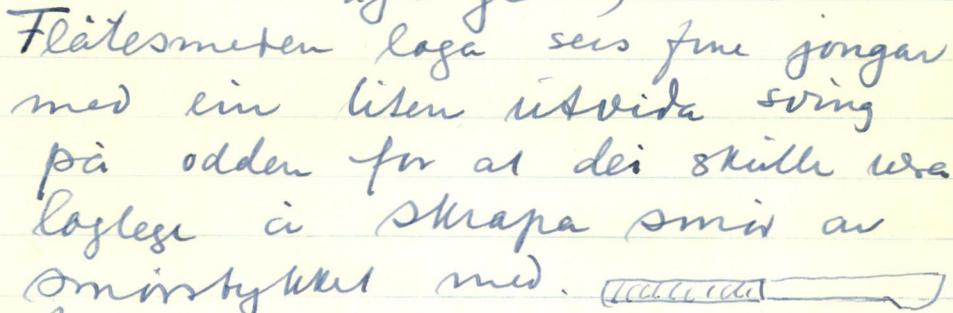 Flåtesmeden laga sers fine jongar
med ein liten utvida sving
på odden for at dei skulle vera
laglege å skrapa smør av
smørstykket med.